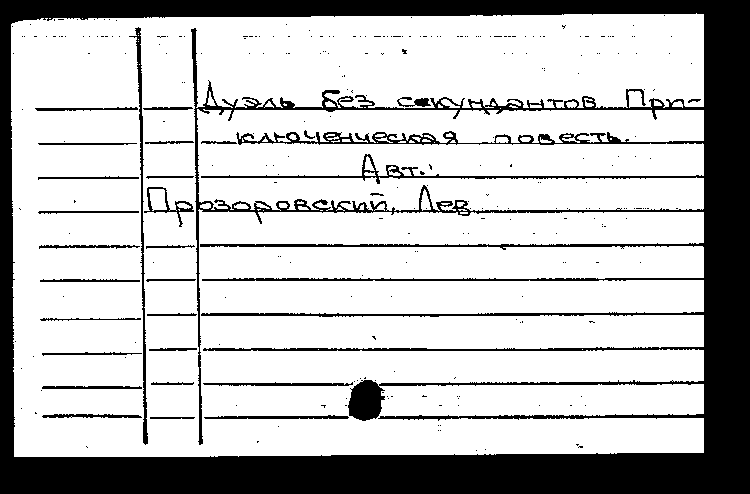 Дуэль без секундантов. При-
ключенческая повесть.
Авт.:
Прозоровский, Лев